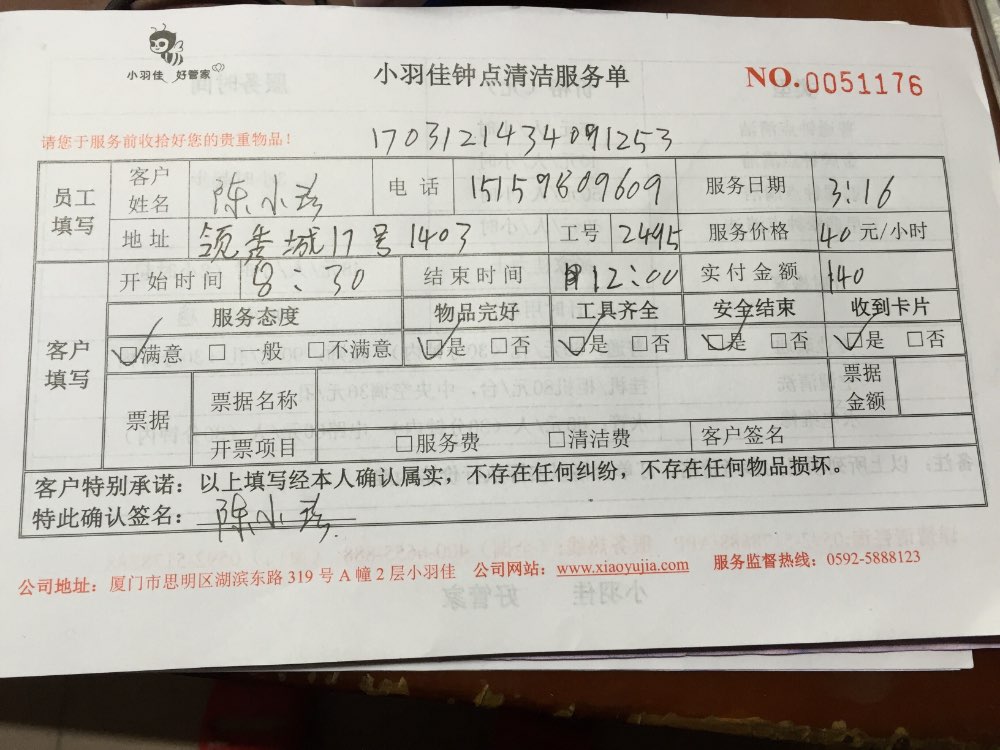 小羽佳 好管家
小羽佳钟点清洁服务单
NO.0051176
请您于服务前收拾好您的贵重物品！
1703121434091253
员工填写 客户姓名 陈小 电话 15159809609 服务日期 3:16
地址 领秀城17号1403 工号 2495 服务价格 40元/小时
开始时间 8:30 结束时间 12:00 实付金额 140
客户填写 服务态度 物品完好 工具齐全 安全结束 收到卡片
☑满意 □一般 □不满意 ☑是 □否 ☑是 □否 ☑是 □否 ☑是 □否
票据 票据名称 票据金额
开票项目 □服务费 □清洁费 客户签名
客户特别承诺：以上填写经本人确认属实，不存在任何纠纷，不存在任何物品损坏。
特此确认签名：陈小
公司地址：厦门市思明区湖滨东路 319 号 A 幢 2 层小羽佳 公司网站：www.xiaoyujia.com 服务监督热线：0592-5888123